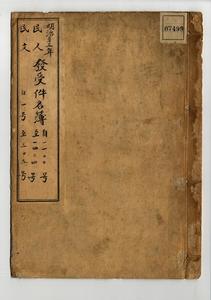 明治三年
民人 發受件名簿 自一一〇号 至一四〇四号
民文 自一号 至三十九号
07499